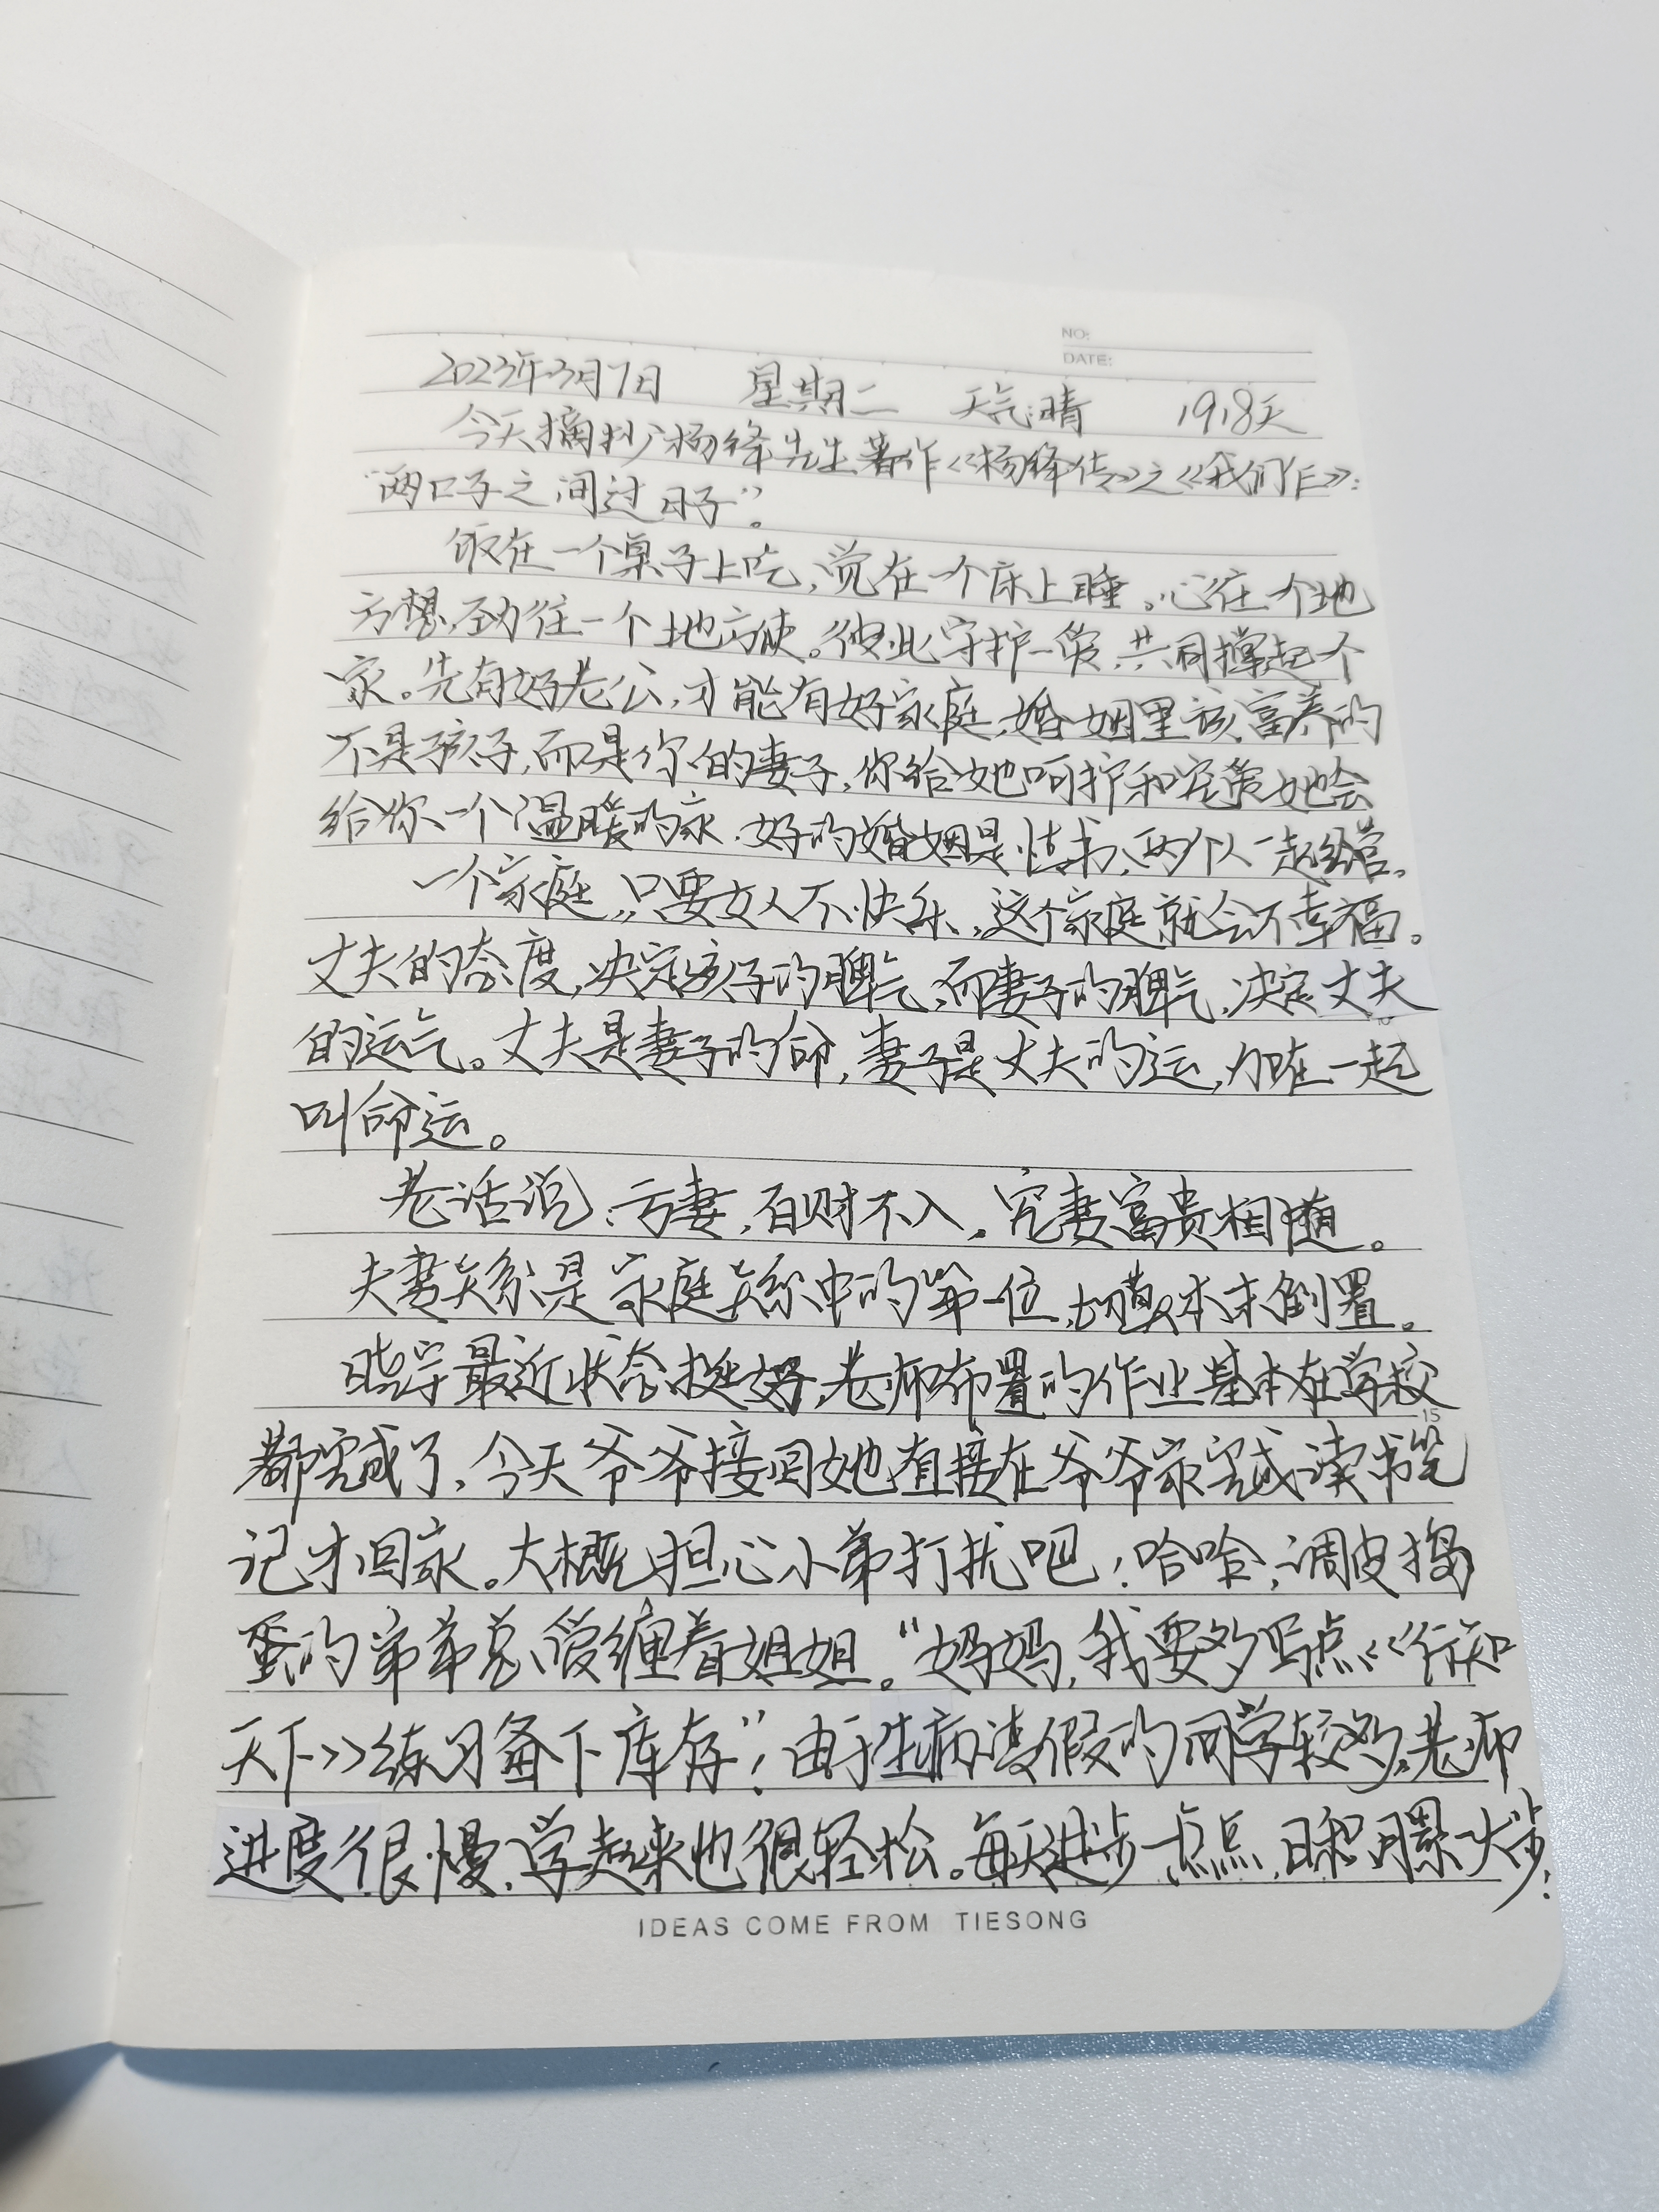 NO:
DATE:
2023年3月7日 星期二 天气:晴 1918天
今天摘抄杨绛先生著作《杨绛传》之《我们仨》:
"两口子之间过日子"。
饭在一个桌子上吃,觉在一个床上睡。心往一个地
方想,劲往一个地方使。彼此守护一爱,共同撑起个
家。先有好老公,才能有好家庭,婚姻里该富养的
不是孩子,而是你的妻子,你给她呵护和宠爱她会
给你一个温暖的家.好的婚姻是情书,两个人一起经营。
一个家庭,只要女人不快乐,这个家庭就会不幸福。
丈夫的态度,决定孩子的脾气,而妻子的脾气,决定丈夫
的运气。丈夫是妻子的命,妻子是丈夫的运,加在一起
叫命运。
老话说:亏妻,百财不入,宠妻富贵相随。
夫妻关系是家庭关系中的第一位,切莫本末倒置。
晓宇最近状态挺好,老师布置的作业基本在学校
都完成了,今天爷爷接回她,直接在爷爷家完成读书笔
记才回家。大概担心小弟打扰吧!哈哈,调皮捣
蛋的弟弟总爱缠着姐姐。"妈妈,我要多写点《行知
天下》练习备下库存"!由于生病请假的同学较多,老师
进度很慢,学起来也很轻松。每天进步一点点,日积月累一大步!
IDEAS COME FROM TIESONG